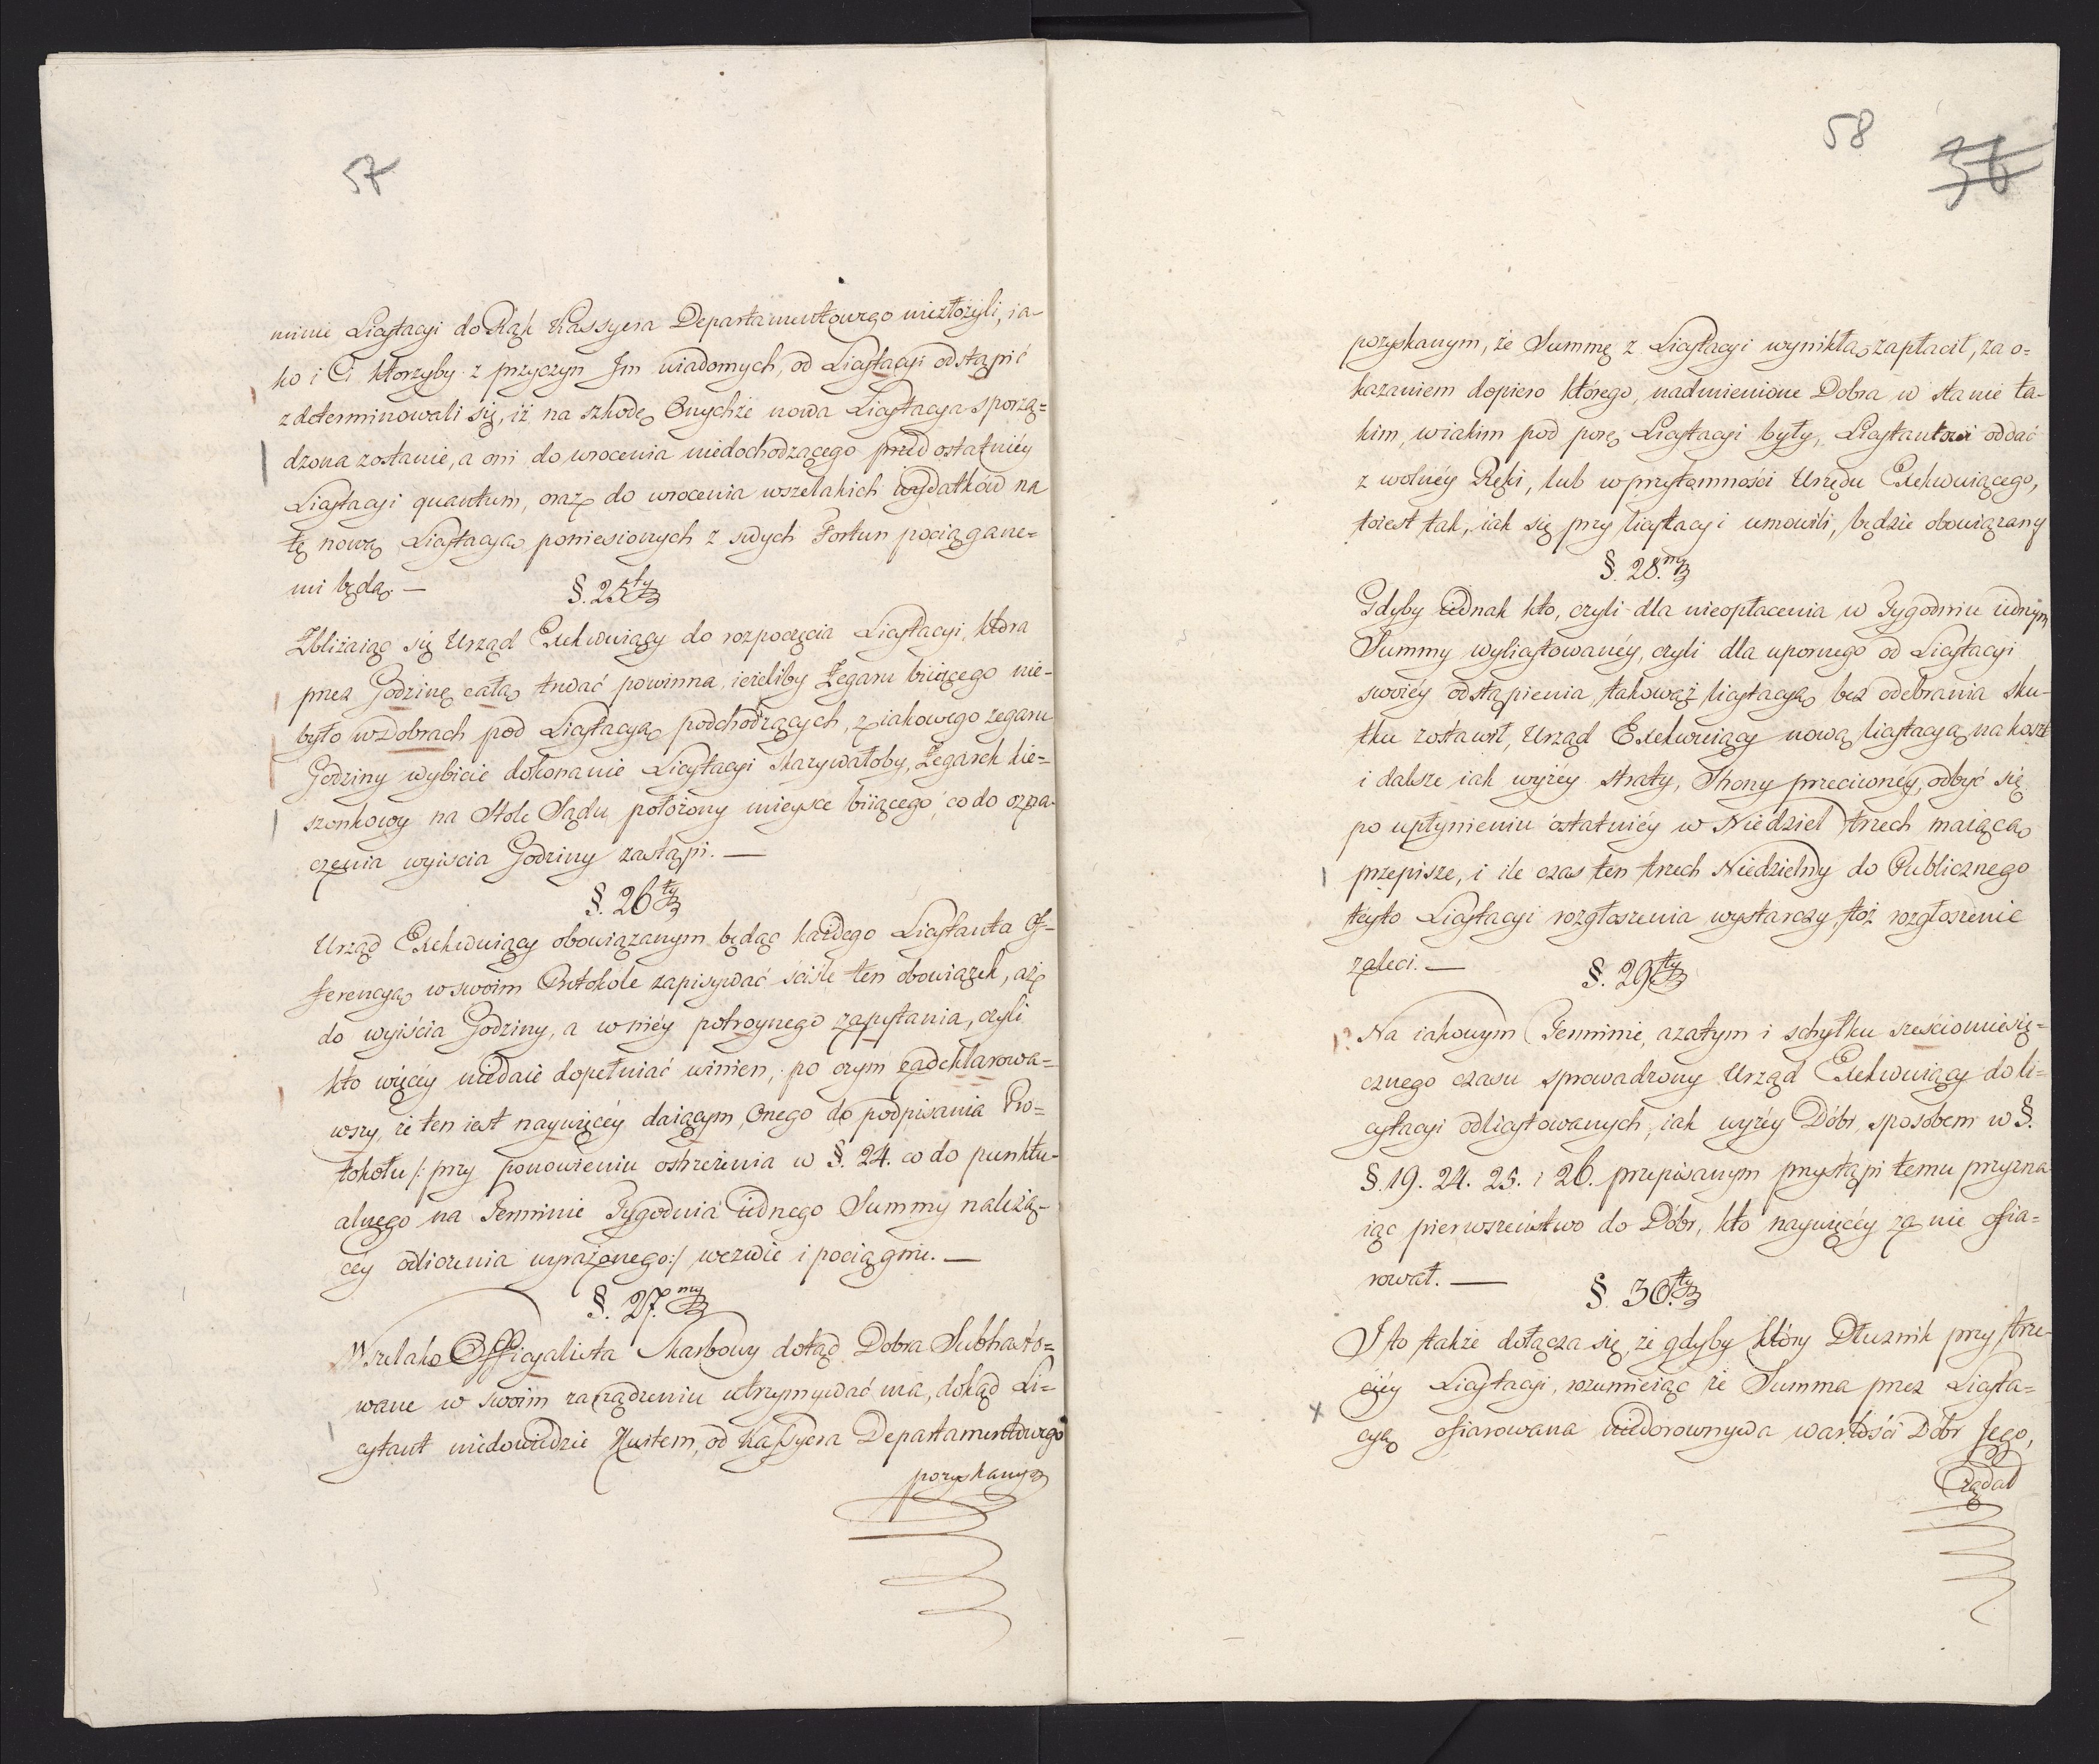 57
minie Licytacyi do Rąk Kassyera Departamentowego niezłożyli, ia-
ko i Ci którzyby z przyczyn Im wiadomych, od Licytacyi odstąpić
zdeterminowali się, iż na szkodę Onychże nowa Licytacya sporzą=
dzona zostanie, a oni do wrócenia niedochodzącego przed ostatniéy
Licytacyi quantum, oraz do wrócenia wszelakich wydatków na
tę nową Licytacyą poniesionych z swych Fortun pociągane=
mi będą. —
§. 25ty
Zbliżaiąc się Urząd Exekwuiący do rozpoczęcia Licytacyi, która
przez Godzinę całą trwać powinna, ieżeliby Zegaru biiącego nie-
było w Dobrach pod Licytacyą podchodzących, z iakowego zegaru
Godziny wybicie dokonanie Licytacyi skazywałoby, Zegarek kie=
szonkowy na Stole Sądu położony mieysce biiącego, co do ozna-
czenia wyiscia Godziny zastąpi. —
§. 26ty
Urząd Exekwuiący obowiązanym będąc każdego Licytanta Of-
ferencyą w swoim Protokole zapisywać ściśle ten obowiązek, aż
do wyiścia Godziny, a w niéy potroynego zapytania, czyli
kto więcéy niedaie dopełniać winien, po czym zadeklarowa=
wszy, że ten iest naywięcéy daiącym, Onego do podpisania Pro=
tokołu /: przy ponowieniu ostrzeżenia w §. 24. co do punktu-
alnego na Terminie Tygodnia iednego Summy należą-
céy odliczenia wyrażonego :/ wezwie i pociągnie. —
§. 27.my
Wszelako Officyalista Skarbowy dotąd Dobra Subhasto=
wane w swoim zarządzeniu utrzymywać ma, dokąd Li=
cytant niedowiedzie Kwitem, od Kassyera Departamentowego
pozyskanym
58
36
pozyskanym, że Summę z Licytacyi wynikłą zapłacił, za o=
kazaniem dopiero którego, nadmienione Dobra w stanie ta-
kim, w iakim pod porę Licytacyi były, Licytantowi oddać
z wolnéy Ręki, lub w przytomności Urzędu Exekwuiącego,
toiest tak, iak się przy licytacyi umowili, będzie obowiązany
§. 28.my
Gdyby iednak kto, czyli dla nieopłacenia w Tygodniu iednym
Summy wylicytowanéy, czyli dla upornego od Licytacyi
swoiéy odstąpienia, takowąż licytacyą bez odebrania sku-
tku zostawił, Urząd Exekwuiący nową licytacyą na koszt
i dalsze iak wyżéy straty, Strony przeciwnéy, odbyć się
po upłynieniu ostatniéy w Niedziel trzech maiącą
przepisze, i ile czas ten trzech Niedzielny do Publicznego
téyto Licytacyi rozgłoszenia wystarczy, też rozgłoszenie
zaleci. —
§. 29ty
Na iakowym Terminie, azatym i schyłku sześciomiesię=
cznego czasu sprowadzony Urząd Exekwuiący do li=
cytacyi odlicytowanych, iak wyżéy Dóbr, sposobem w §.
§. 19. 24. 25. i 26. przepisanym przystąpi temu przyzna-
iąc pierwszeństwo do Dóbr, kto naywięcéy za nie ofia=
rował. —
§. 30.ty
I to także dołącza się, że gdyby który Dłużnik przy trze-
ciéy Licytacyi, rozumieiąc że Summa przez Licyta=
cyą ofiarowana niedorownywa wartości Dóbr Jego,
żądał